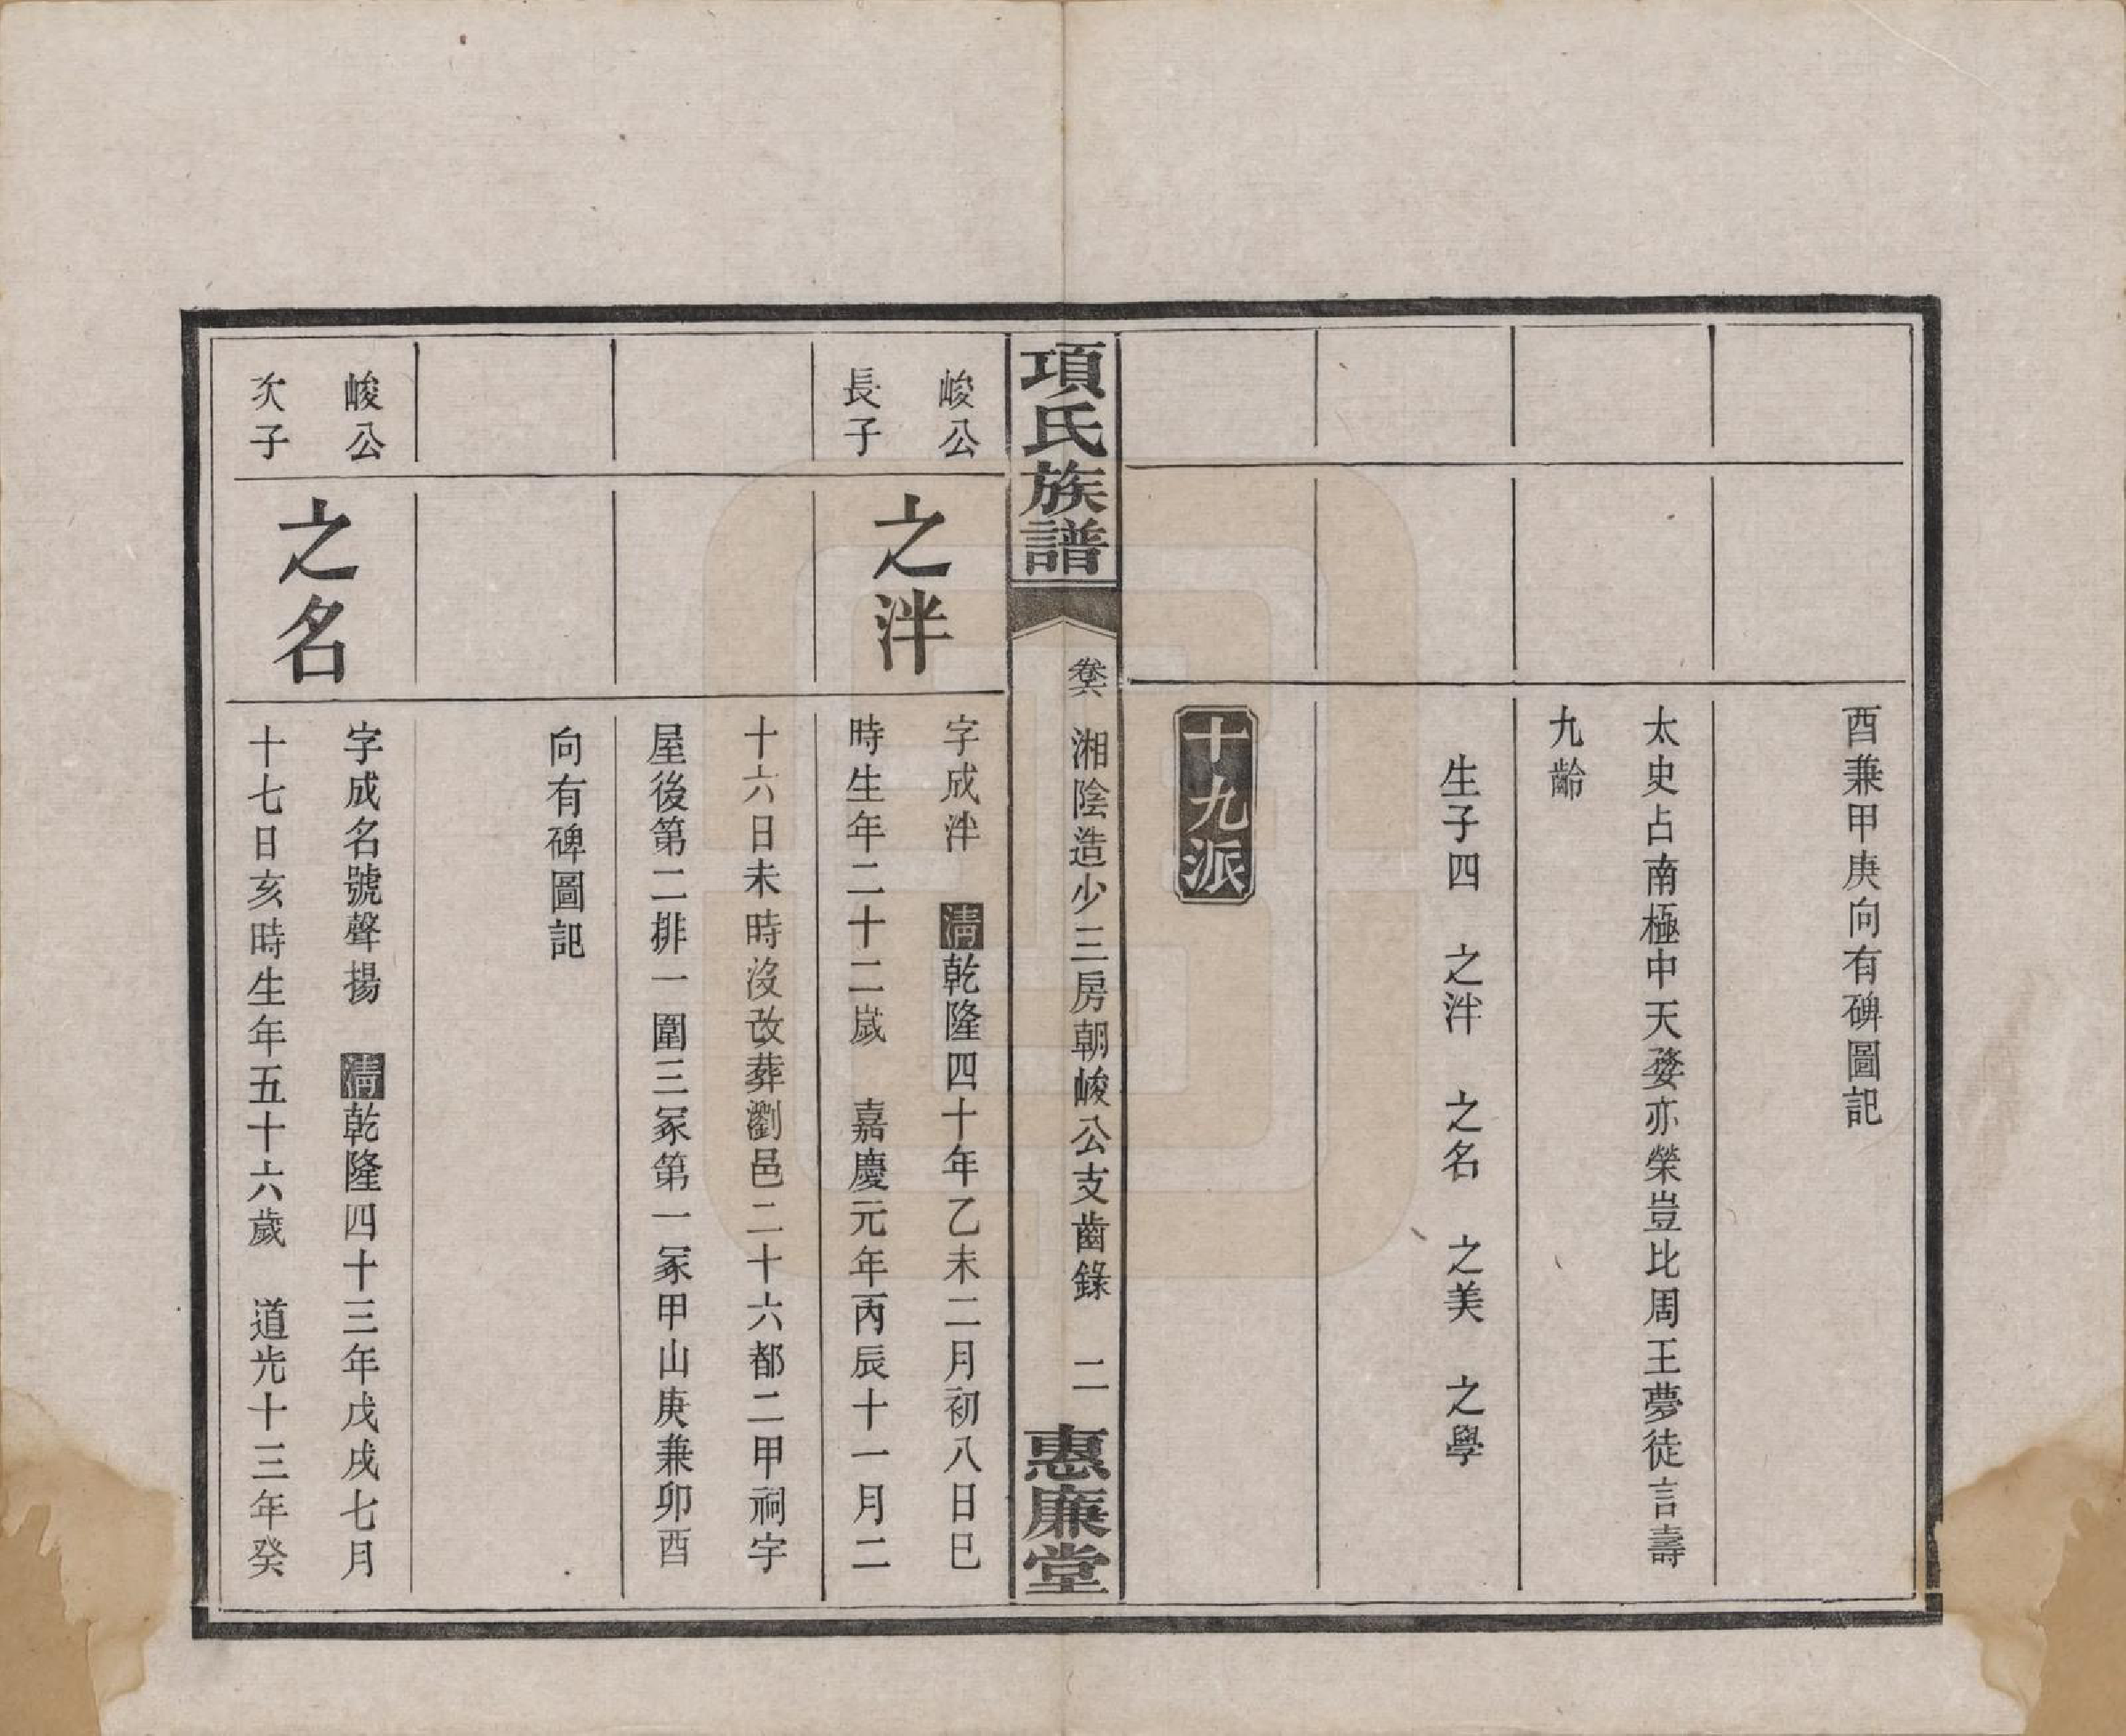 酉兼甲庚向有碑圖記
太史占南極中天婺亦榮豈比周王夢徒言壽
九齡
生子四　之泮　之名　之美　之學
十九派
項氏族譜
卷六　湘陰造少三房朝峻公支齒錄　二
惠廉堂
峻公
長子
之泮
字成泮　清乾隆四十年乙未二月初八日巳
時生年二十二歲　嘉慶元年丙辰十一月二
十六日未時沒改葬瀏邑二十六都二甲祠宇
屋後第二排一圍三冢第一冢甲山庚兼卯酉
向有碑圖記
峻公
次子
之名
字成名號聲揚　清乾隆四十三年戊戌七月
十七日亥時生年五十六歲　道光十三年癸